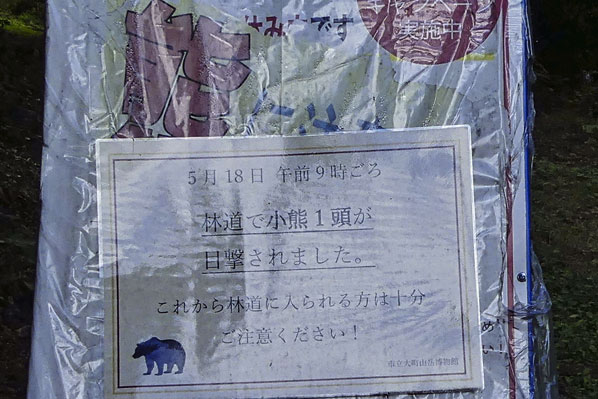 休み中です
実施中
熊
5月18日 午前9時ごろ
林道で小熊1頭が
目撃されました。
これから林道に入られる方は十分
ご注意ください!
市立大町山岳博物館